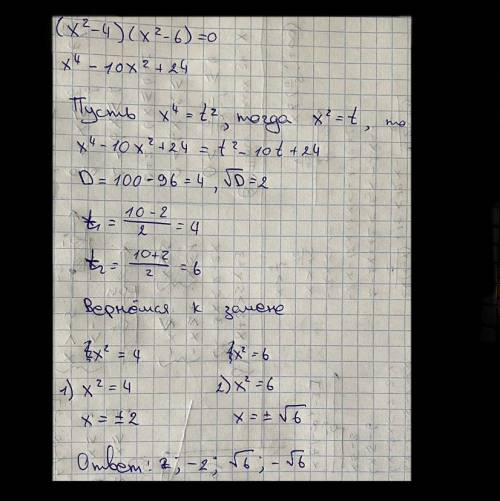 (x²-4)(x²-6)=0
x⁴ - 10x² + 24
Пусть x⁴ = t², тогда x² = t, то
x⁴ - 10x² + 24 = t² - 10t + 24
D = 100 - 96 = 4, √D = 2
t₁ = (10 - 2)/2 = 4
t₂ = (10+2)/2 = 6
Вернёмся к замене
x² = 4 x² = 6
1) x² = 4 2) x² = 6
x = ± 2 x = ± √6
Ответ: 2; -2; √6; -√6